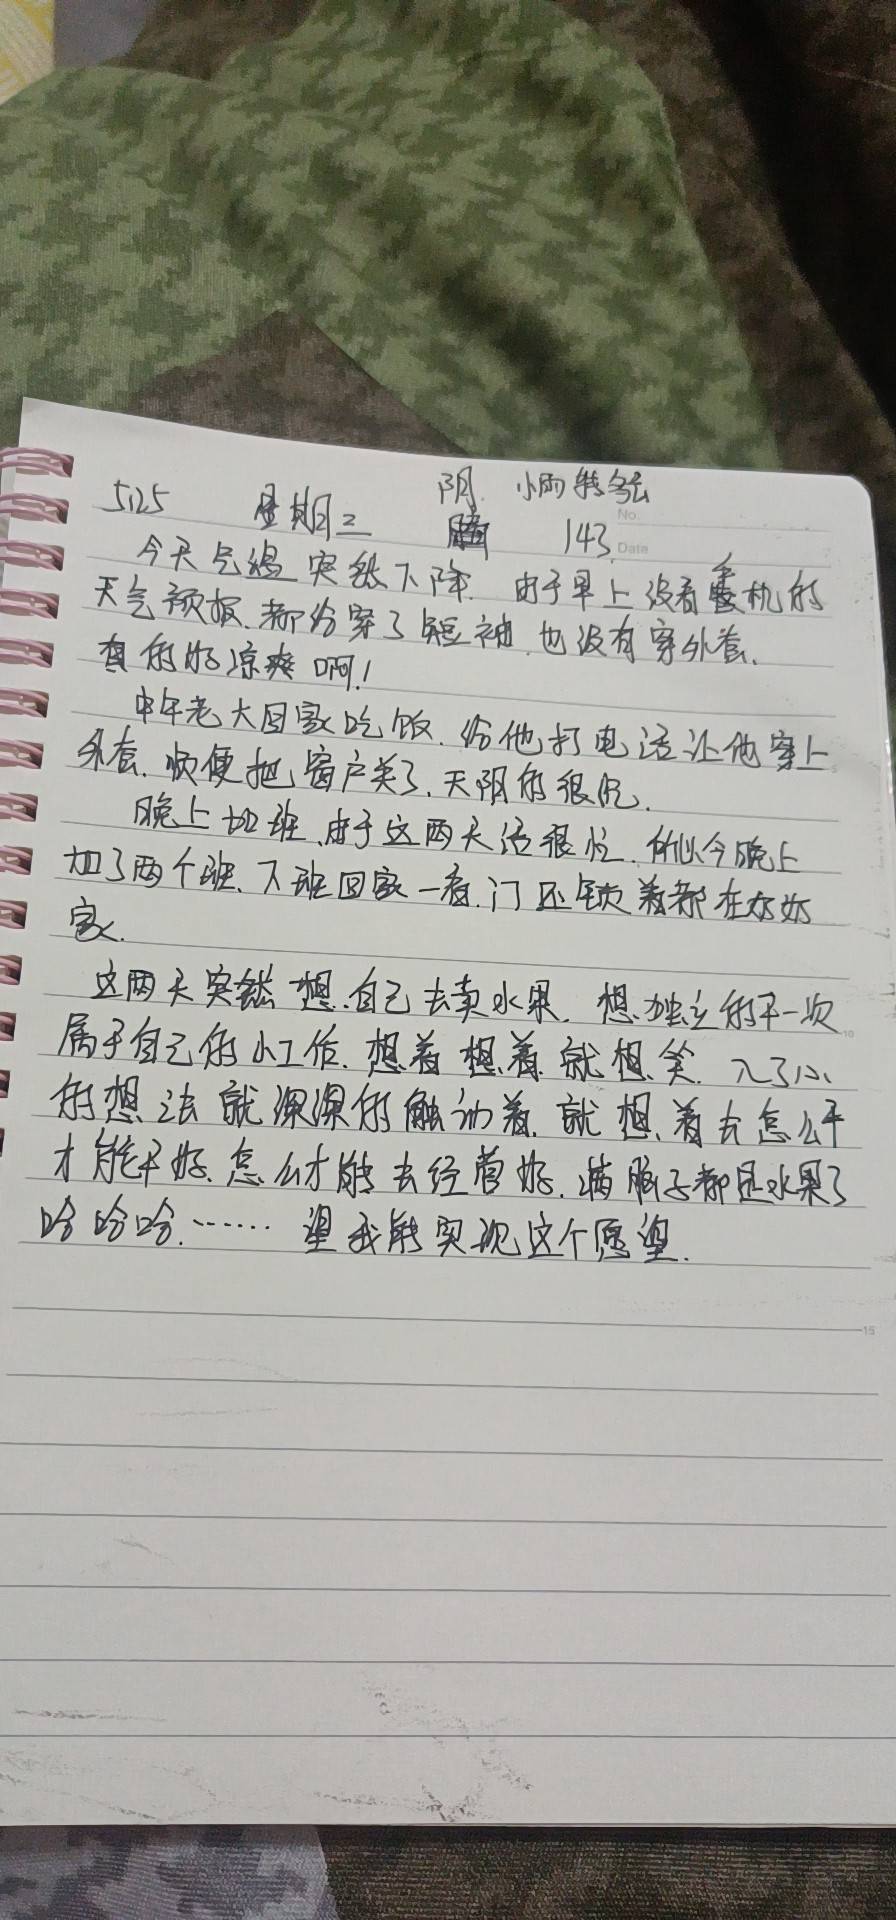 阴. 小雨转多云
5.25 星期二 143
No.
Date
今天气温突然下降. 由于早上没看手机的
天气预报. 都份穿了短袖. 也没有穿外套.
真的好凉爽啊!
中午老大回家吃饭. 给他打电话让他穿上
外套. 顺便把窗户关了. 天阴的很沉.
晚上加班. 由于这两天活很忙. 所以今晚上
加了两个班. 下班回家一看. 门还锁着都在奶奶
家.
这两天突然想. 自己去卖水果. 想独立的干一次
属于自己的小工作. 想着想着就想笑. 入了心
的想法就深深的触动着. 就想着去怎么干
10
才能干好. 怎么才能去经营好. 满脑子都是水果了
哈哈哈. …… 望我能实现这个愿望.
15